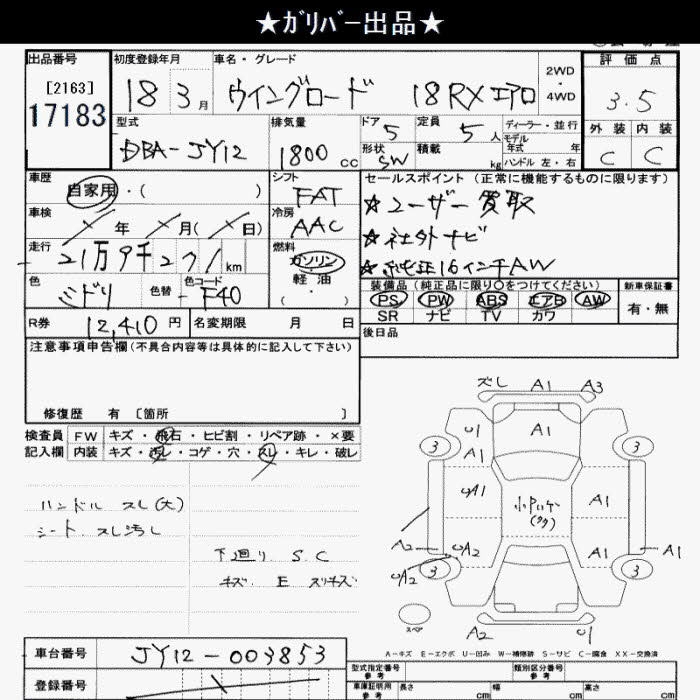 ★ｶﾞﾘﾊﾞｰ出品★
出品番号
[2163]
17183
初度登録年月
18 3月
車名・グレード
ウイングロード 18RX エアロ
2WD・4WD
評価点
3.5
外装 内装
C C
型式
DBA-JY12
排気量
1800cc
ドア 5
形状 SW
定員 5人
積載 kg
ディーラー・並行
モデル年式 年
ハンドル 左・右
車歴
自家用・( )
シフト
FAT
車検
年 月( 日)
冷房
AAC
走行
21万9千271km
燃料
ガソリン
軽油
( )
色
ミドリ
色替
色コード
F40
セールスポイント(正常に機能するものに限ります)
☆ユーザー買取
☆社外ナビ
☆純正16インチAW
装備品(純正品に限り○をつけてください)
PS PW ABS エアB AW
SR ナビ TV カワ
新車保証書
有・無
R券 12,410円
名変期限 月 日
後日品
注意事項申告欄(不具合内容等は具体的に記入して下さい)
修復歴 有 [箇所 ]
検査員記入欄
FW キズ・飛石・ヒビ割・リペア跡・×要
内装 キズ・汚レ・コゲ・穴・スレ・キレ・破レ
ハンドル スレ(大)
シート スレ汚レ
下廻り S.C
キズ. E スリキズ
ズレ A1 A3
3 U1 A1 3
A1
UA1 A1
A2 UA2 A1 A1
UA2 3 3
スペア
A2 U1
A-キズ E-エクボ U-凹み W-補修跡 S-サビ C-腐食 XX-交換済
車台番号
JY12-003853
登録番号
型式指定番号 参考
類別区分番号 参考
車庫証明用 参考
長さ cm
幅 cm
高さ cm